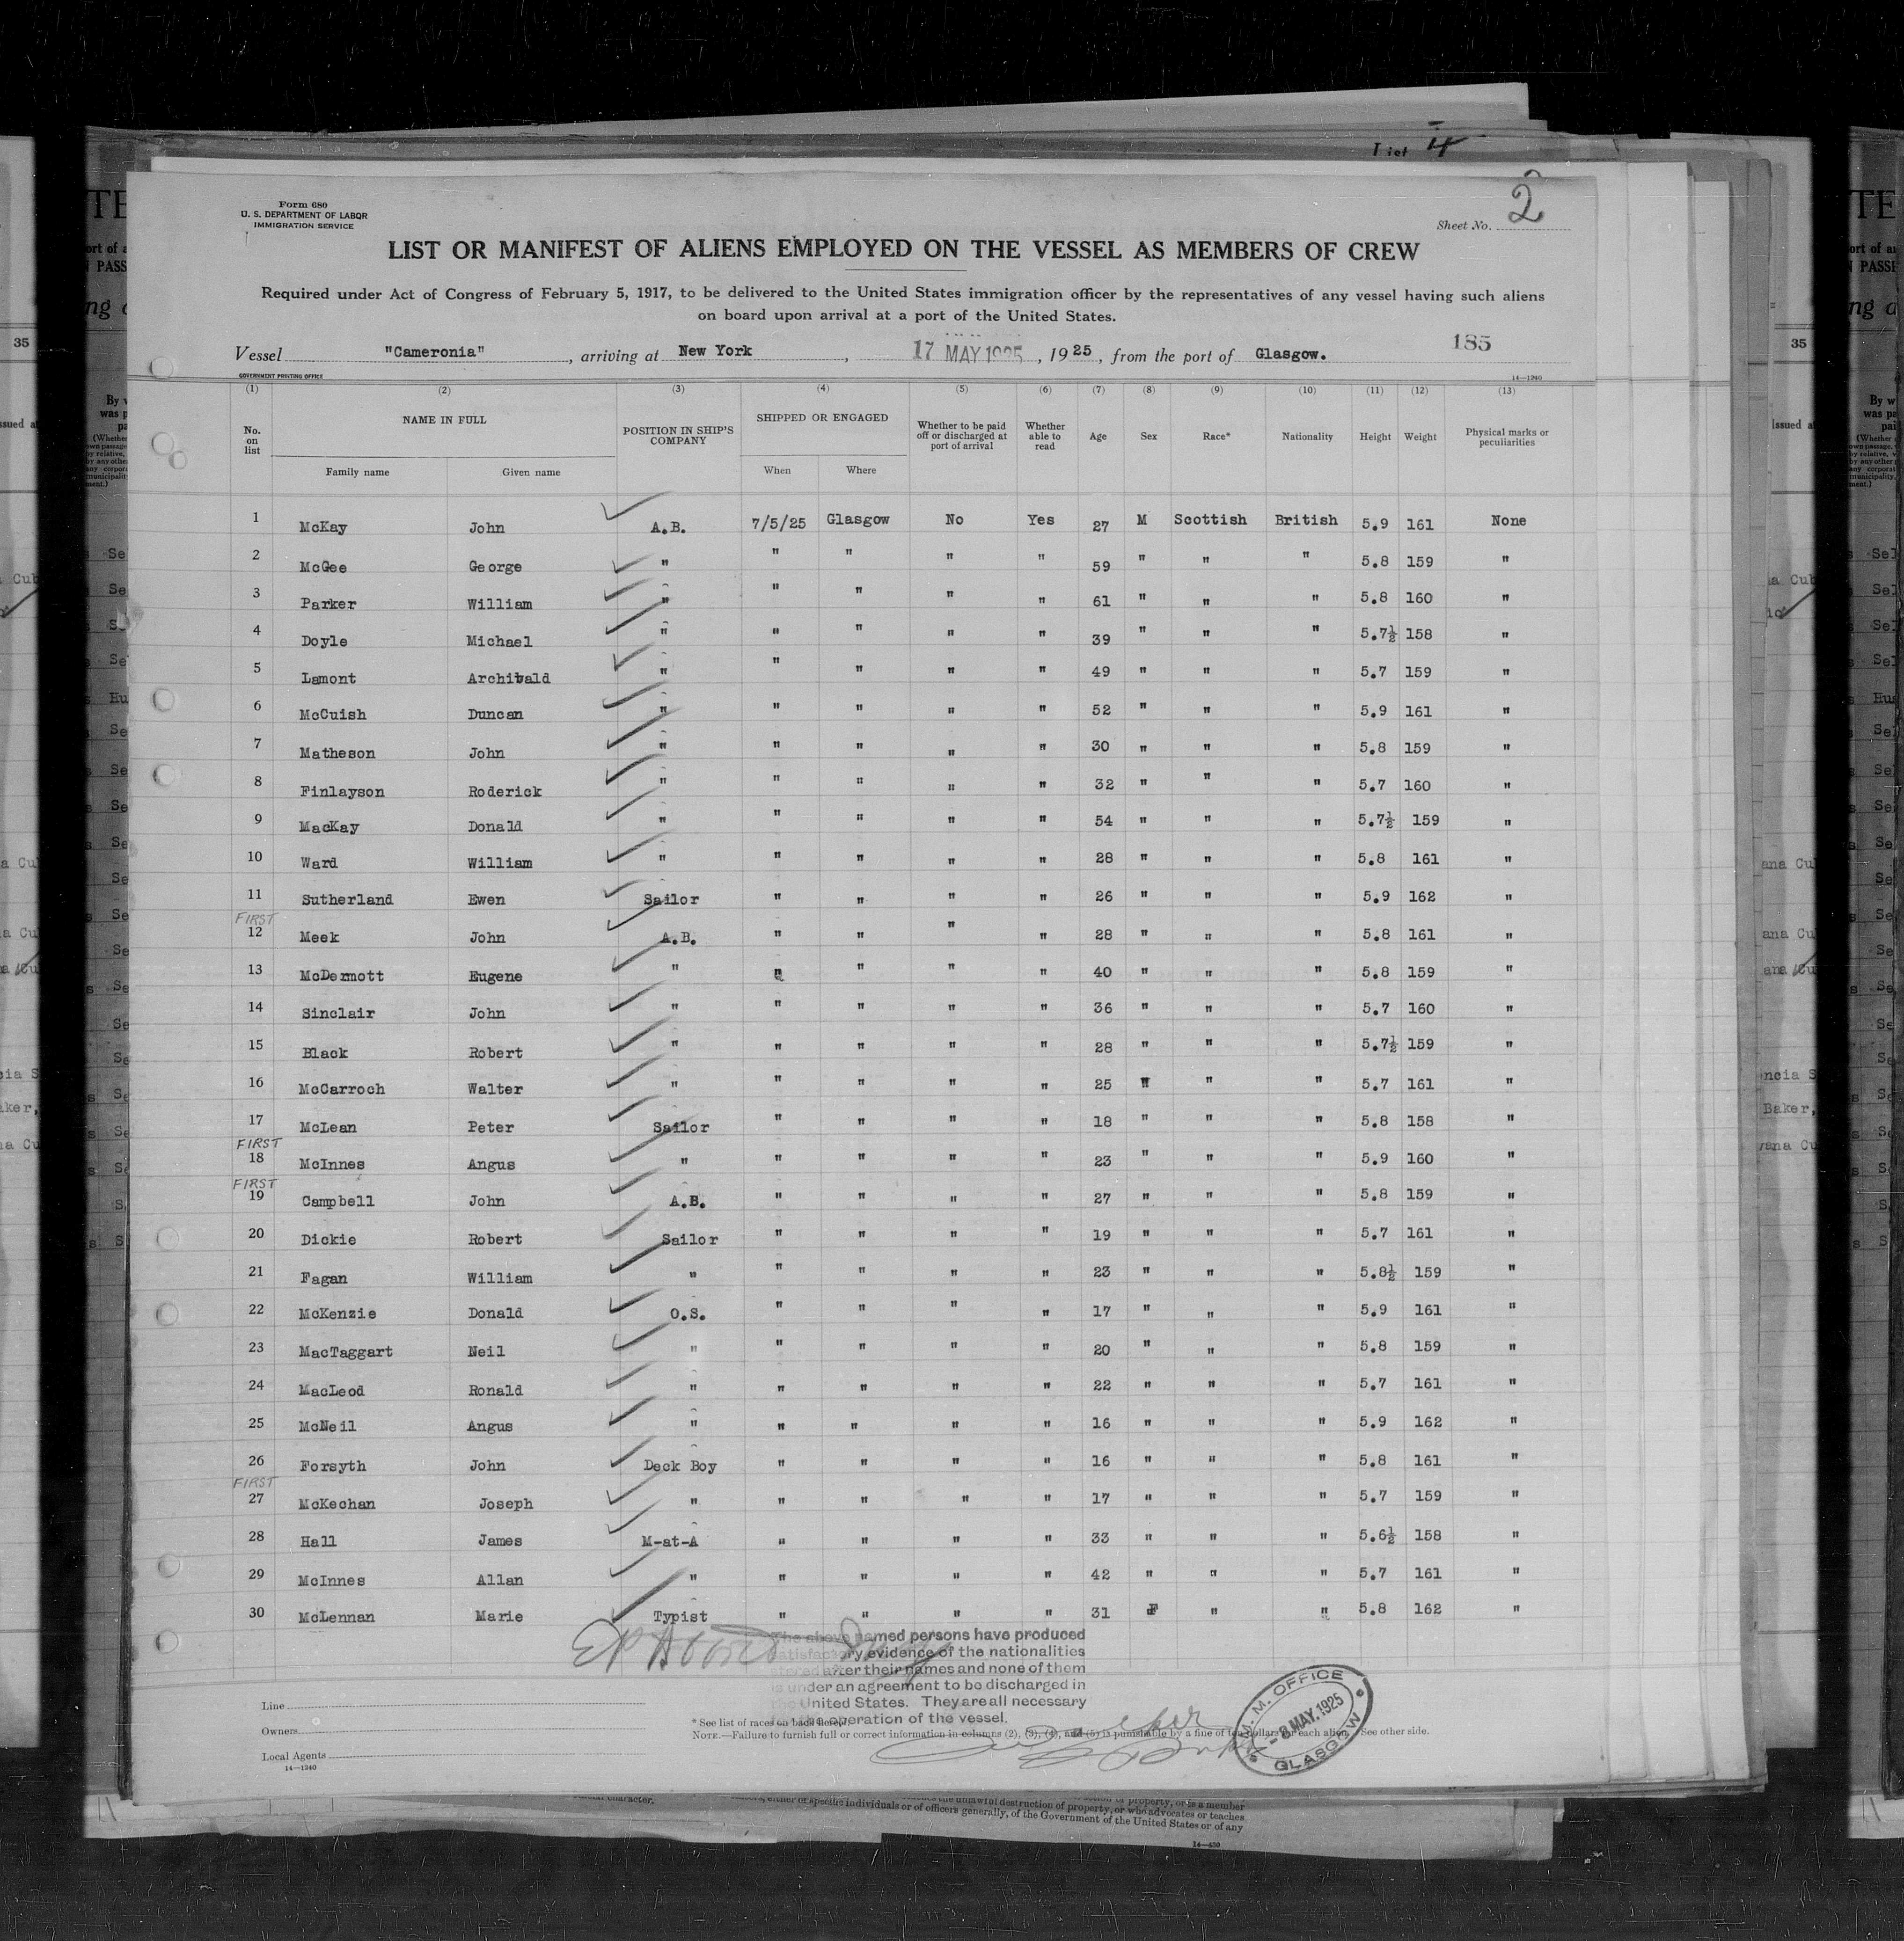 List 4
Form 680
U. S. DEPARTMENT OF LABOR
IMMIGRATION SERVICE
Sheet No. 2
LIST OR MANIFEST OF ALIENS EMPLOYED ON THE VESSEL AS MEMBERS OF CREW
Required under Act of Congress of February 5, 1917, to be delivered to the United States immigration officer by the representatives of any vessel having such aliens
on board upon arrival at a port of the United States.
185
Vessel "Cameronia", arriving at New York, 17 MAY 1925, 1925, from the port of Glasgow.
GOVERNMENT PRINTING OFFICE 14—1240
(1) (2) (3) (4) (5) (6) (7) (8) (9) (10) (11) (12) (13)
No. on list NAME IN FULL Family name Given name POSITION IN SHIP'S COMPANY SHIPPED OR ENGAGED When Where Whether to be paid off or discharged at port of arrival Whether able to read Age Sex Race* Nationality Height Weight Physical marks or peculiarities
1 McKay John A.B. 7/5/25 Glasgow No Yes 27 M Scottish British 5.9 161 None
2 McGee George " " " " " 59 " " " 5.8 159 "
3 Parker William " " " " " 61 " " " 5.8 160 "
4 Doyle Michael " " " " " 39 " " " 5.7½ 158 "
5 Lamont Archibald " " " " " 49 " " " 5.7 159 "
6 McCuish Duncan " " " " " 52 " " " 5.9 161 "
7 Matheson John " " " " " 30 " " " 5.8 159 "
8 Finlayson Roderick " " " " " 32 " " " 5.7 160 "
9 MacKay Donald " " " " " 54 " " " 5.7½ 159 "
10 Ward William " " " " " 28 " " " 5.8 161 "
11 Sutherland Ewen Sailor " " " " 26 " " " 5.9 162 "
FIRST
12 Meek John A.B. " " " " 28 " " " 5.8 161 "
13 McDermott Eugene " " " " " 40 " " " 5.8 159 "
14 Sinclair John " " " " " 36 " " " 5.7 160 "
15 Black Robert " " " " " 28 " " " 5.7½ 159 "
16 McCarroch Walter " " " " " 25 " " " 5.7 161 "
17 McLean Peter Sailor " " " " 18 " " " 5.8 158 "
FIRST
18 McInnes Angus " " " " " 23 " " " 5.9 160 "
FIRST
19 Campbell John A.B. " " " " 27 " " " 5.8 159 "
20 Dickie Robert Sailor " " " " 19 " " " 5.7 161 "
21 Fagan William " " " " " 23 " " " 5.8½ 159 "
22 McKenzie Donald O.S. " " " " 17 " " " 5.9 161 "
23 MacTaggart Neil " " " " " 20 " " " 5.8 159 "
24 MacLeod Ronald " " " " " 22 " " " 5.7 161 "
25 McNeil Angus " " " " " 16 " " " 5.9 162 "
26 Forsyth John Deck Boy " " " " 16 " " " 5.8 161 "
FIRST
27 McKechan Joseph " " " " " 17 " " " 5.7 159 "
28 Hall James M-at-A " " " " 33 " " " 5.6½ 158 "
29 McInnes Allan " " " " " 42 " " " 5.7 161 "
30 McLennan Marie Typist " " " " 31 F " " 5.8 162 "
The above named persons have produced
satisfactory evidence of the nationalities
stated after their names and none of them
is under an agreement to be discharged in
the United States. They are all necessary
for the operation of the vessel.
Line
Owners
Local Agents
14—1240
* See list of races on back hereof.
NOTE.—Failure to furnish full or correct information in columns (2), (3), (4), and (5) is punishable by a fine of ten dollars for each alien. See other side.
M. M. OFFICE
-8 MAY. 1925
GLASGOW
the unlawful destruction of property, or is a member
either of specific individuals or of officers generally, of the Government of the United States or of any
14—430